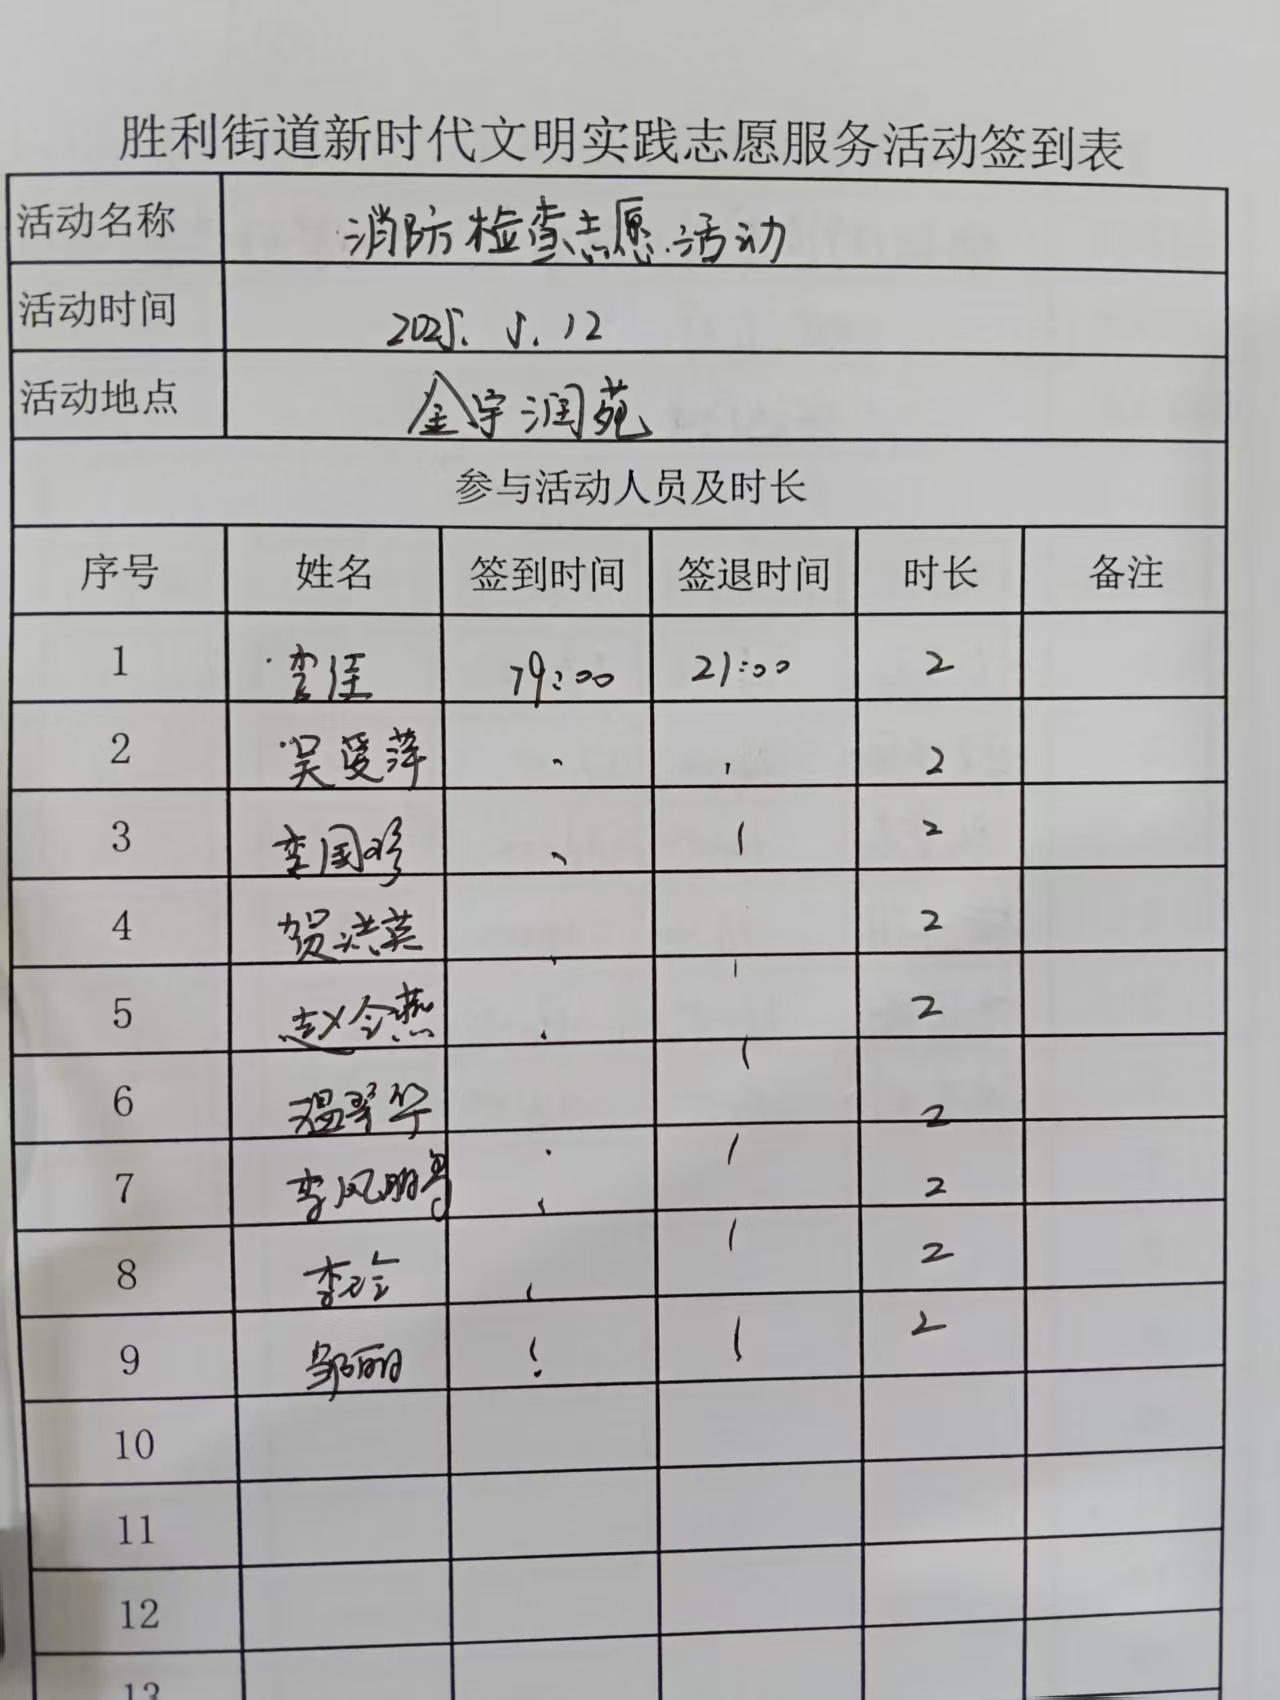 胜利街道新时代文明实践志愿服务活动签到表
活动名称 消防检查志愿活动
活动时间 2025.5.12
活动地点 金宇润苑
参与活动人员及时长
序号 姓名 签到时间 签退时间 时长 备注
1 李佳 19:00 21:00 2
2 吴爱萍 2
3 李国珍 2
4 贺洪英 2
5 赵令燕 2
6 温翠华 2
7 李凤鹏 2
8 李玲 2
9 邹丽 2
10
11
12
13